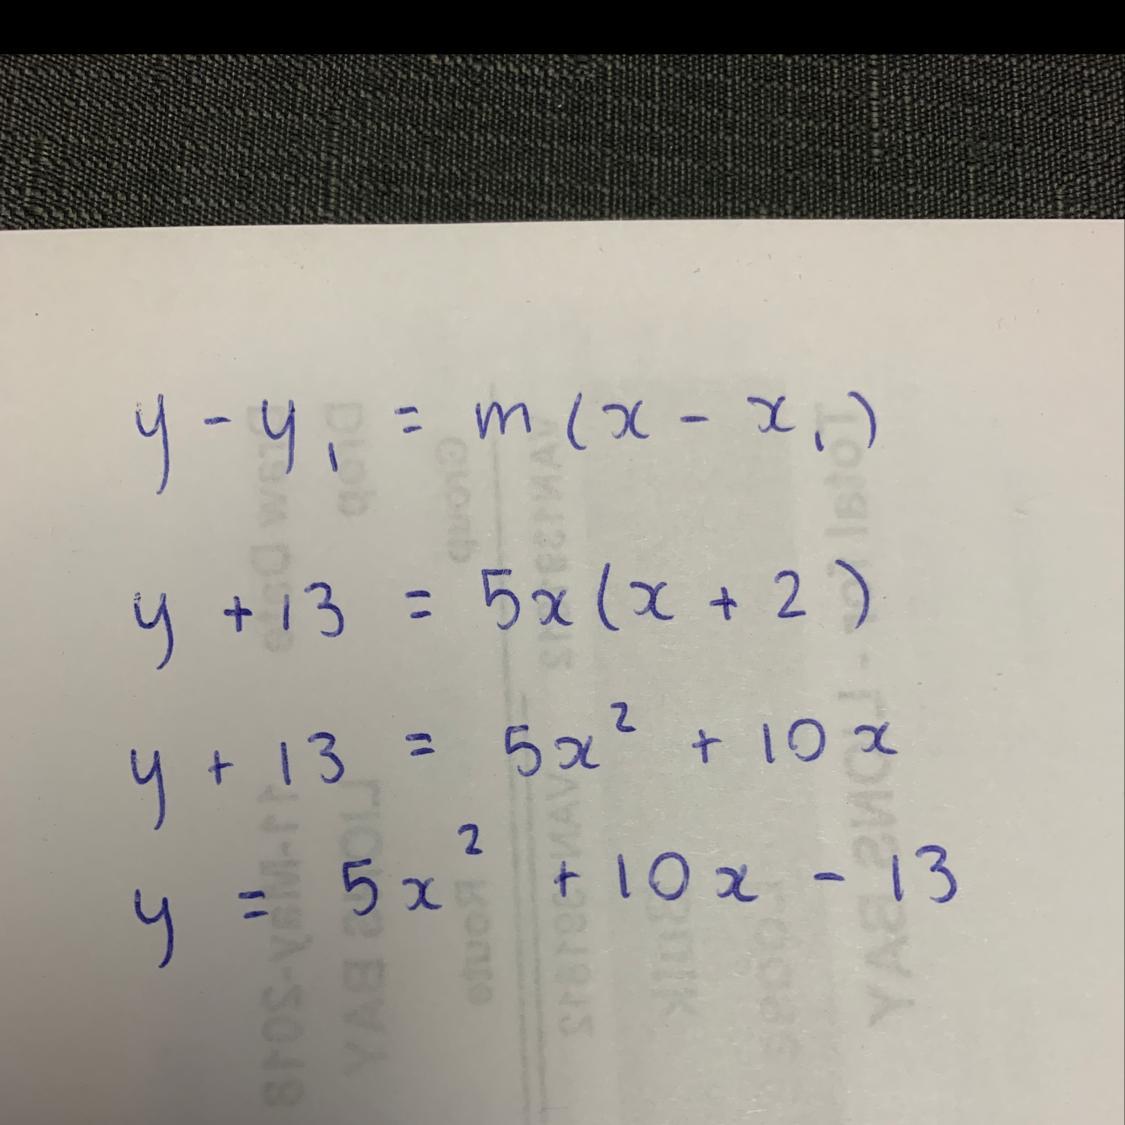 y - y₁ = m(x - x₁)
y + 13 = 5x(x + 2)
y + 13 = 5x² + 10x
y = 5x² + 10x - 13